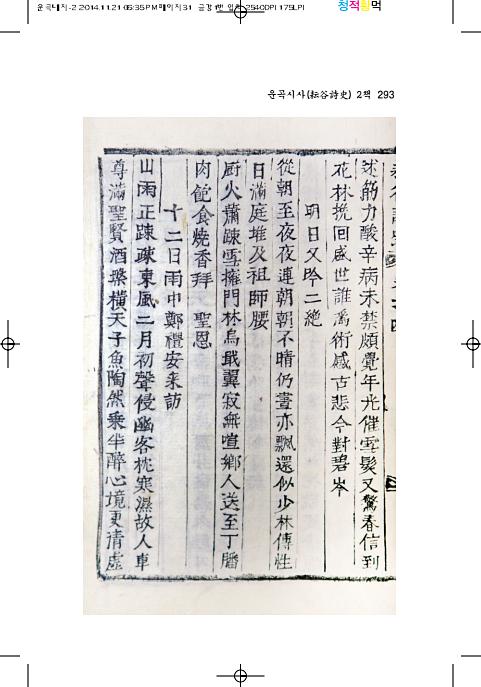 운곡대지-2 2014.11.21 05:35 PM 페이지31
2540DPI 175LPI
청적황먹
운곡시사(耘谷詩史) 2책 293
筋力酸辛病未禁頗覺年光催雪髮又驚春信到
花林挽回盛世誰爲術感古悲今對碧岑
明日又吟二絶
從朝至夜夜連朝朝不晴仍晝亦飄還似少林傳性
日滿庭堆及祖師腰
厨火蕭疎雪擁門林烏戢翼寂無喧鄕人送至丁膰
肉飽食燒香拜 聖恩
十二日雨中鄭禮安来訪
山雨正踈踈東風二月初聲侵幽客枕寒濕故人車
尊滿聖賢酒槃橫天子魚陶然乘半醉心境更清虛